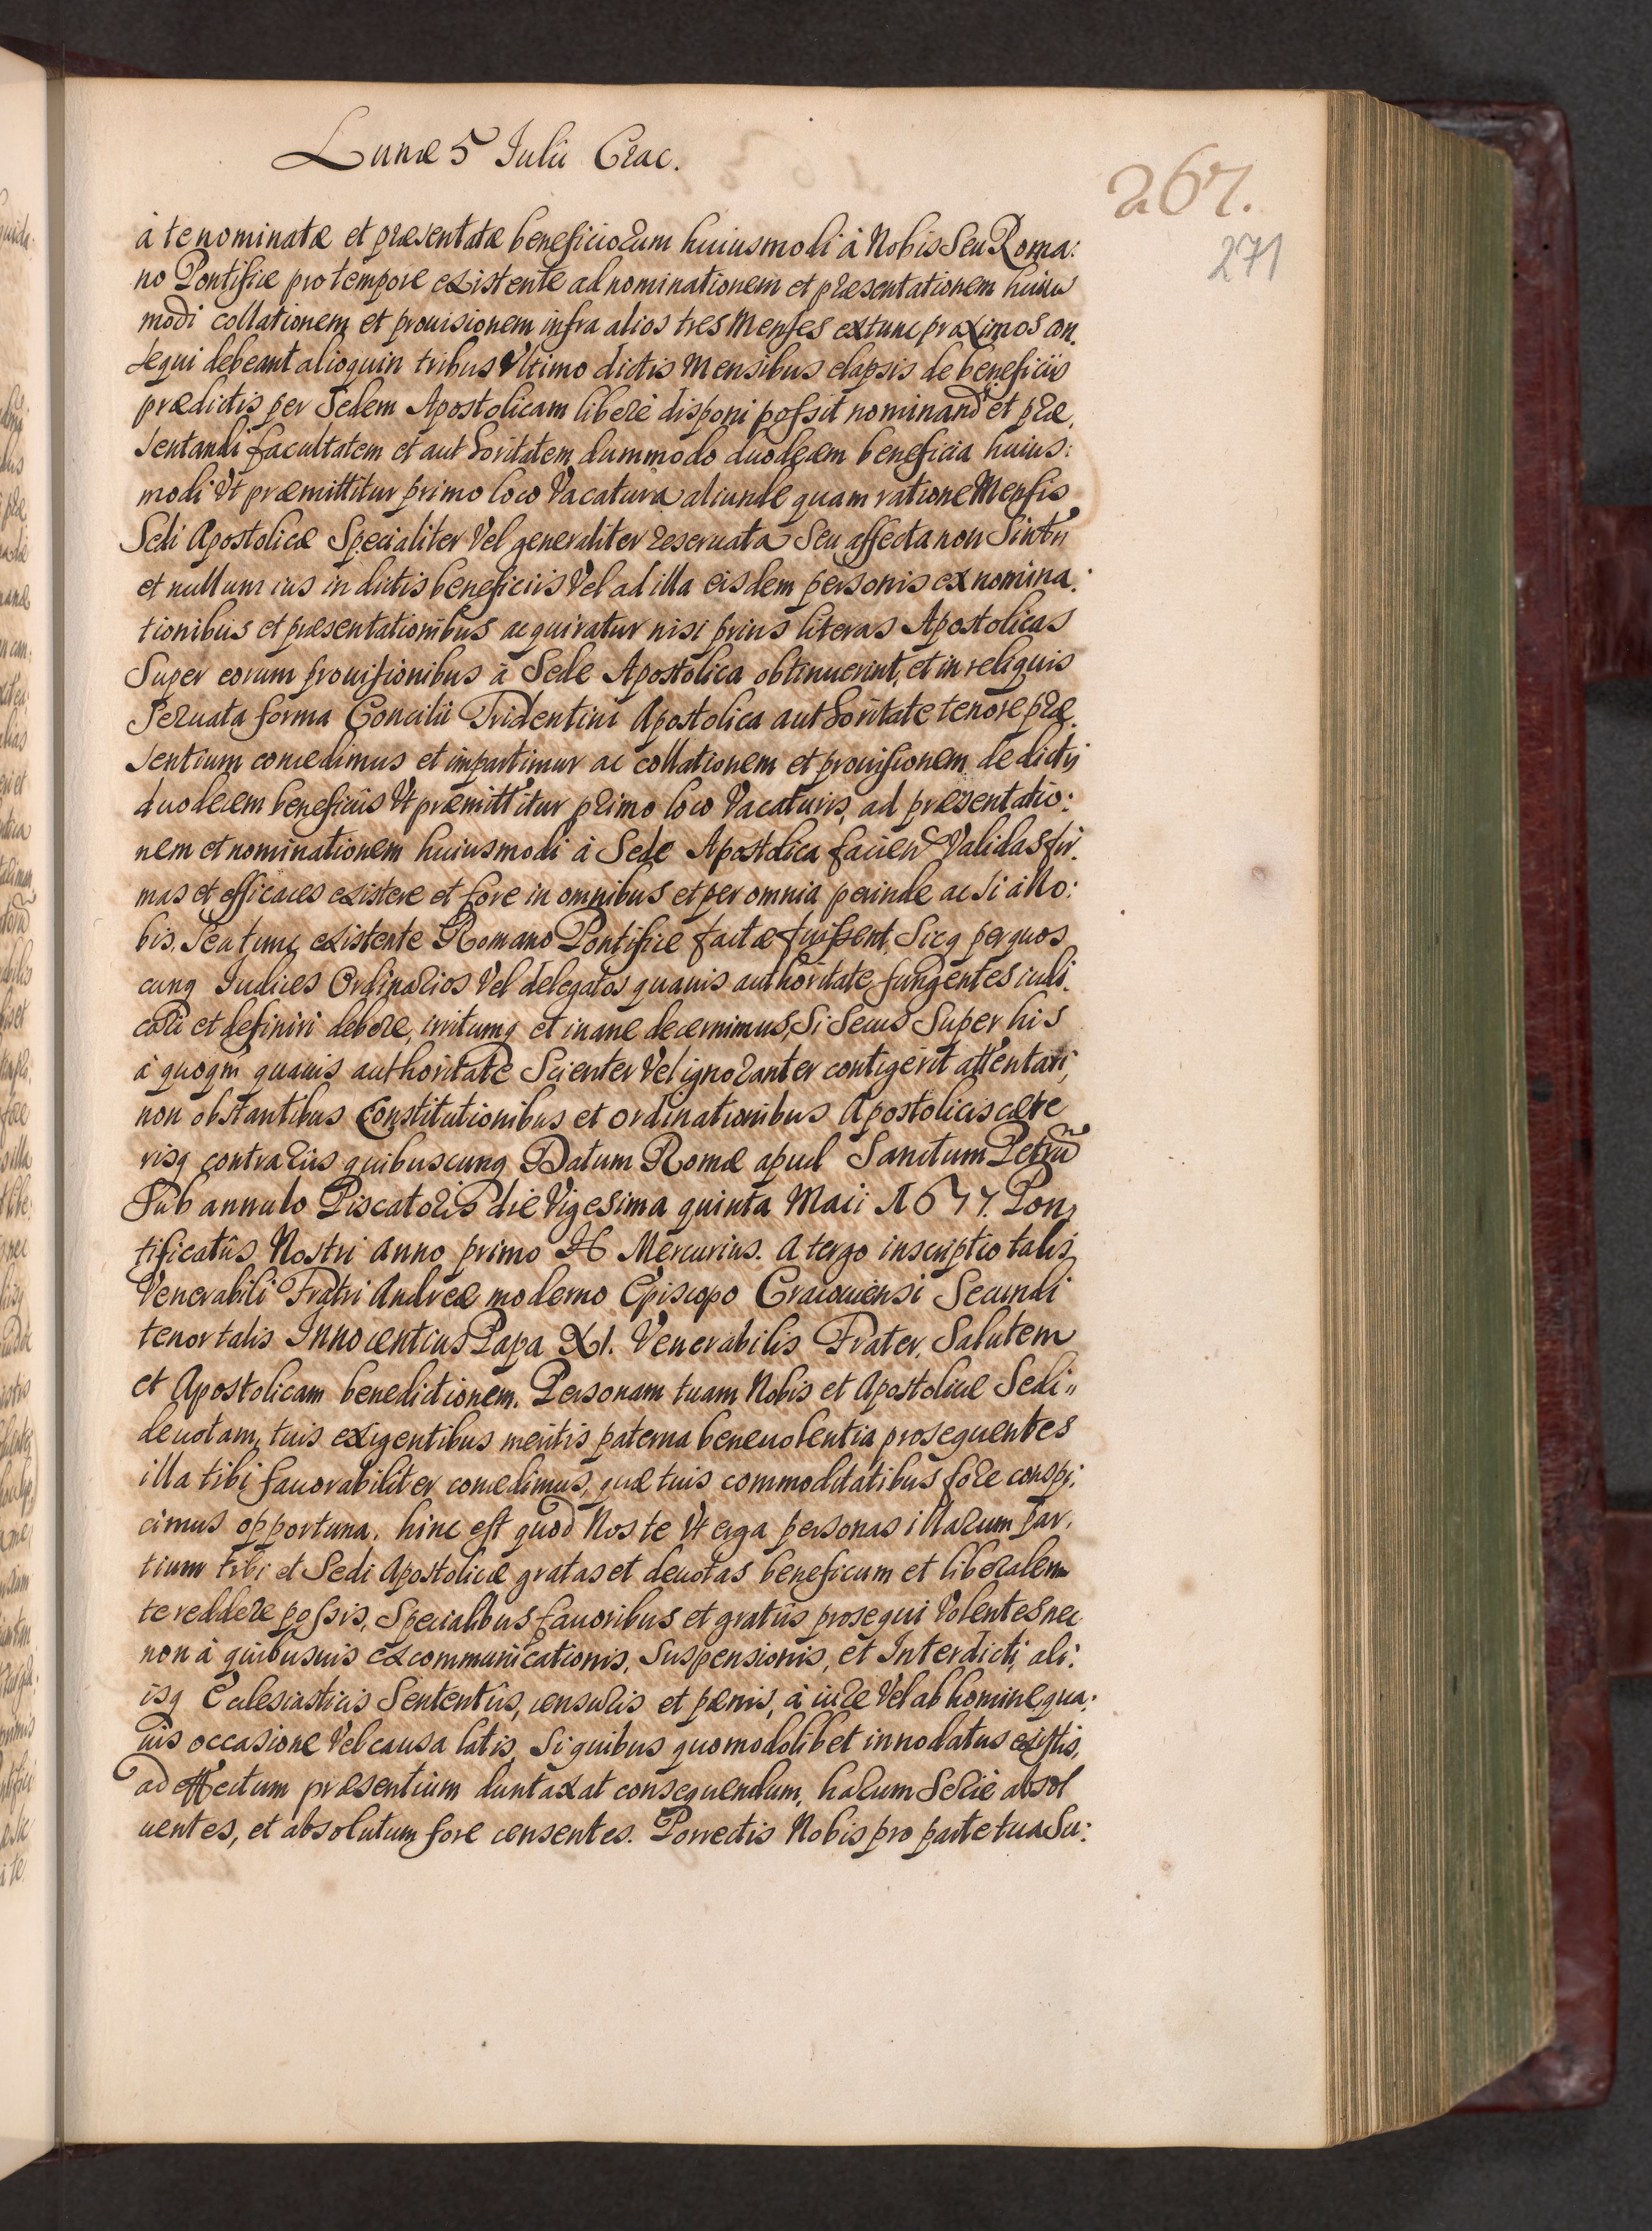 Lunæ 5 Iulii Crac.
267.
271
à te nominatæ et præsentatæ beneficiorum huiusmodi à Nobis Seu Roma:
no Pontifice pro tempore existente ad nominationem et præsentationem huius
modi collationem et prouisionem infra alios tres Menses extunc proximos con.
sequi debeant alioquin tribus Vltimo dictis Mensibus elapsis de beneficiis
prædictis per Sedem Apostolicam liberè disponi possit nominand et præ.
sentandi facultatem et authoritatem dummodo duodecem beneficia huius:
modi Vt præmittitur primo loco Vacatura aliunde quam ratione Mensis
Sedi Apostolicæ Specialiter Vel generaliter reseruata Seu affecta non Sint
et nullum ius in dictis beneficiis Vel ad illa eisdem personis ex nomina:
tionibus et præsentationibus acquiratur nisi prius literas Apostolicas
Super eorum prouisionibus à Sede Apostolica obtinuerint, et in reliquis
Seruata forma Concilii Tridentini Apostolica authoritate tenore præ.
sentium concedimus et impartimur ac collationem et prouisionem de dictis
duodecem beneficiis Vt præmittitur primo loco Vacaturis, ad præsentatio:
nem et nominationem huiusmodi à Sede Apostolica faciend Validas fir.
mas et efficaces existere et fore in omnibus et per omnia perinde ac Si à No:
bis. Seu tunc existente Romano Pontifice factæ fuissent, Sicq per quos
cunq Iudices Ordinarios Vel delegatos quauis authoritate fungentes iudi.
cari et definiri debere, irritumq et inane decernimus, Si Secus Super his
à quoqm quauis authoritate Scienter Vel ignoranter contigerit attentari,
non obstantibus Constitutionibus et ordinationibus Apostolicis cæte
risq contrariis quibuscunq Datum Romæ apud Sanctum Petrū
Sub annulo Piscatoris die Vigesima quinta Maii 1677. Pon,
tificatûs Nostri Anno primo Mercurius. A tergo inscriptio talis
Venerabili Fratri Andreæ moderno Episcopo Cracouiensi Secundi
tenor talis Innocentius Papa XI. Venerabilis Frater, Salutem
et Apostolicam benedictionem. Personam tuam Nobis et Apostolicæ Sedi"
deuotam, tuis exigentibus meritis paterna beneuolentia prosequentes
illa tibi fauorabiliter concedimus, quæ tuis commoditatibus fore conspi:
cimus opportuna. hinc est quod Nos te Vt erga personas illarum par.
tium tibi et Sedi Apostolicæ gratas et deuotas beneficum et liberalem
te reddere possis, Specialibus fauoribus et gratiis prosequi Volentes nec
non à quibusuis excommunicationis, Suspensionis, et Interdicti, ali:
isq Ecclesiasticis Sententiis, censuris et pænis, à iure Vel ab homine qua:
uis occasione Vel causa latis, Si quibus quomodolibet innodatus existis,
ad effectum præsentium duntaxat consequendum, harum Seriè absol
uentes, et absolutum fore censentes. Porrectis Nobis pro parte tua Su: